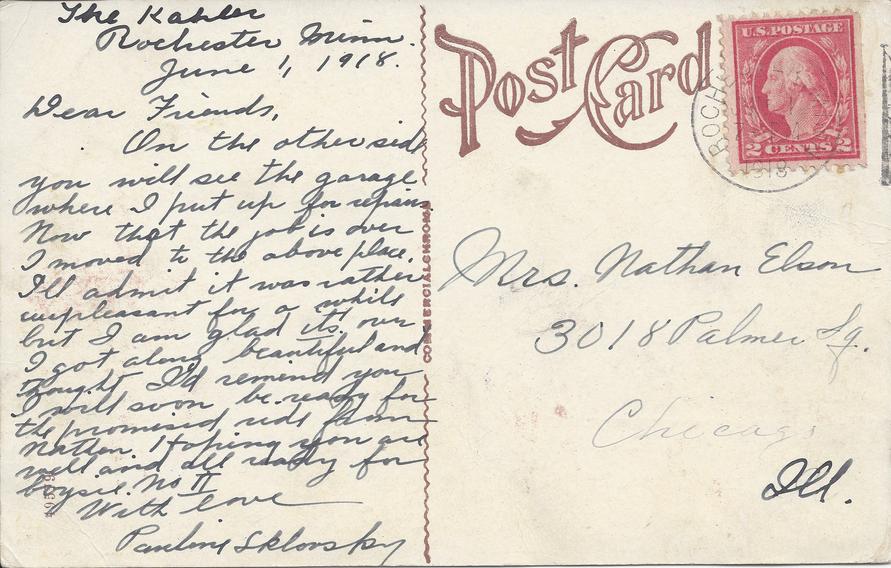 The Kahler
Rochester Minn.
June 1, 1918.
Dear Friends,
On the other side
you will see the garage
where I put up for repairs.
Now that the job is over
I moved to the above place.
I'll admit it was rather
unpleasant for a while
but I am glad its over.
I got along beautiful and
thought I'd remind you
I will soon be ready for
the promised ride from
Nathan. Hoping you are
well and all ready for
boysie No II
With love
Pauline Sklovsky
Post Card
COMMERCIALCHROME
U.S. POSTAGE
2 CENTS 2
ROCHE
1918
Mrs. Nathan Elson
3018 Palmer Sq.
Chicago
Ill.